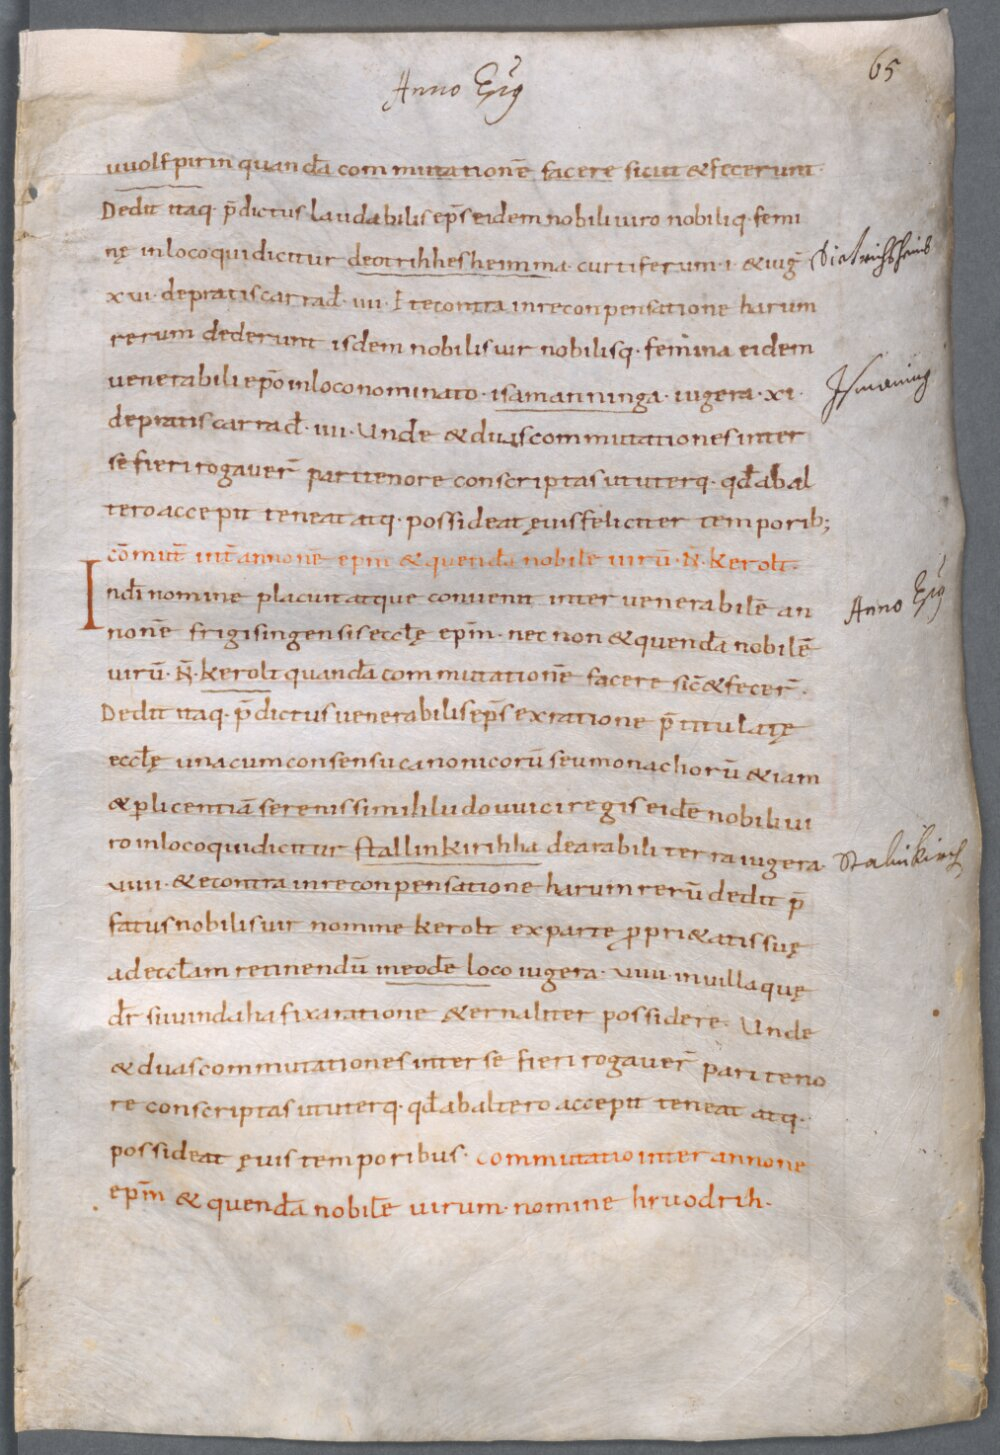 Anno Epg
65
uuolfpirin quandā commutationē facere sicut &fecerunt·
Dedit itaq· p̄dictus laudabilis ep̄s eidem nobili uiro nobiliq· femi
nę inloco qui dicitur deotrihheshemma· curtiferum·i· &iug̅
xui· depratis carrad̄· iiii· Et econtra inreconpensatione harum
rerum dederunt isdem nobilis uir nobilisq· femina eidem
uenerabili ep̄o inloco nominato· isamanninga· iugera· xi·
depratis carrad̄· iiii· Unde &duas commutationes inter
se fieri rogauer̄ pari tenore conscriptas ut uterq· qd̄ abal
tero accepit teneat atq· possideat ęuis feliciter temporib;
cōmut̄ int̄ annonē epm̄ &quendā nobilē uirū· N̄· kerolt·
Ind̄i nomine placuit atque conuenit inter uenerabilē an
nonē frigisingensis eccłę epm̄· nec non &quendā nobilē
uirū· N̄· kerolt quandā commutationē facere sic̄ &fecer̄·
Dedit itaq· p̄dictus uenerabilis ep̄s exratione p̄titulatę
eccłę una cum consensu canonicorū seu monachorū &iam
&p̱ licentiā serenissimi hludouuici regis eidē nobili ui
ro inloco qui dicitur stallinkirihha dearabili terra iugera·
uiiii· &econtra inreconpensatione harum rerū dedit p̄
fatus nobilis uir nomine kerolt exparte ꝓpri&atis suę
ad eccłam retinendū ineodē loco iugera· uiiii· inuilla quę
dr̄ siuuindaha fixa ratione &ernaliter possidere· Unde
&duas commutationes inter se fieri rogauer̄ pari teno
re conscriptas ut uterq· qd̄ abaltero accepit teneat atq·
possideat ęuis temporibus· commutatio inter annone
epm̄ &quendā nobilē uirum· nomine hruodrih·
Dietrichshaimb
Ismaning
Anno Epg
Stalinkirch